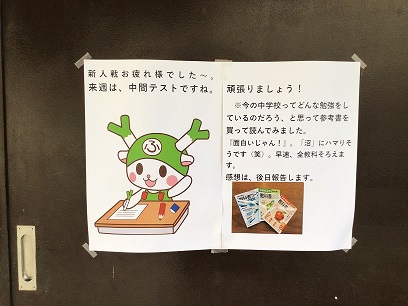 新人戦お疲れ様でした～。
来週は、中間テストですね。
ふ
頑張りましょう！
※今の中学校ってどんな勉強をし
ているのだろう、と思って参考書を
買って読んでみました。
「面白いじゃん！」。「沼」にハマりそ
うです（笑）。早速、全教科そろえま
す。
感想は、後日報告します。